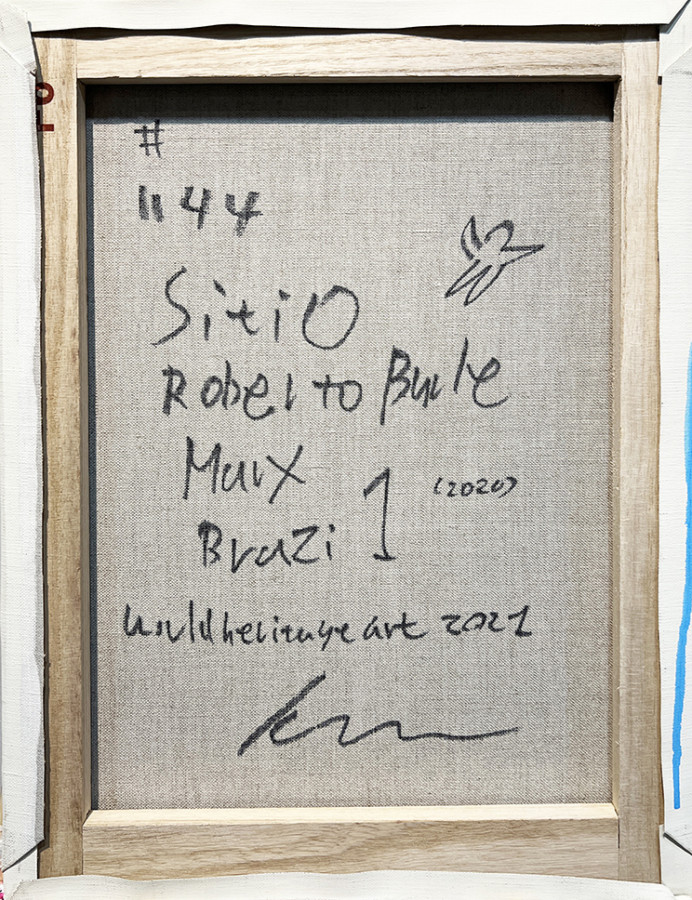 #
1144
Sitio
Roberto Burle
Marx
Brazil
(2020)
worldheritage art 2021